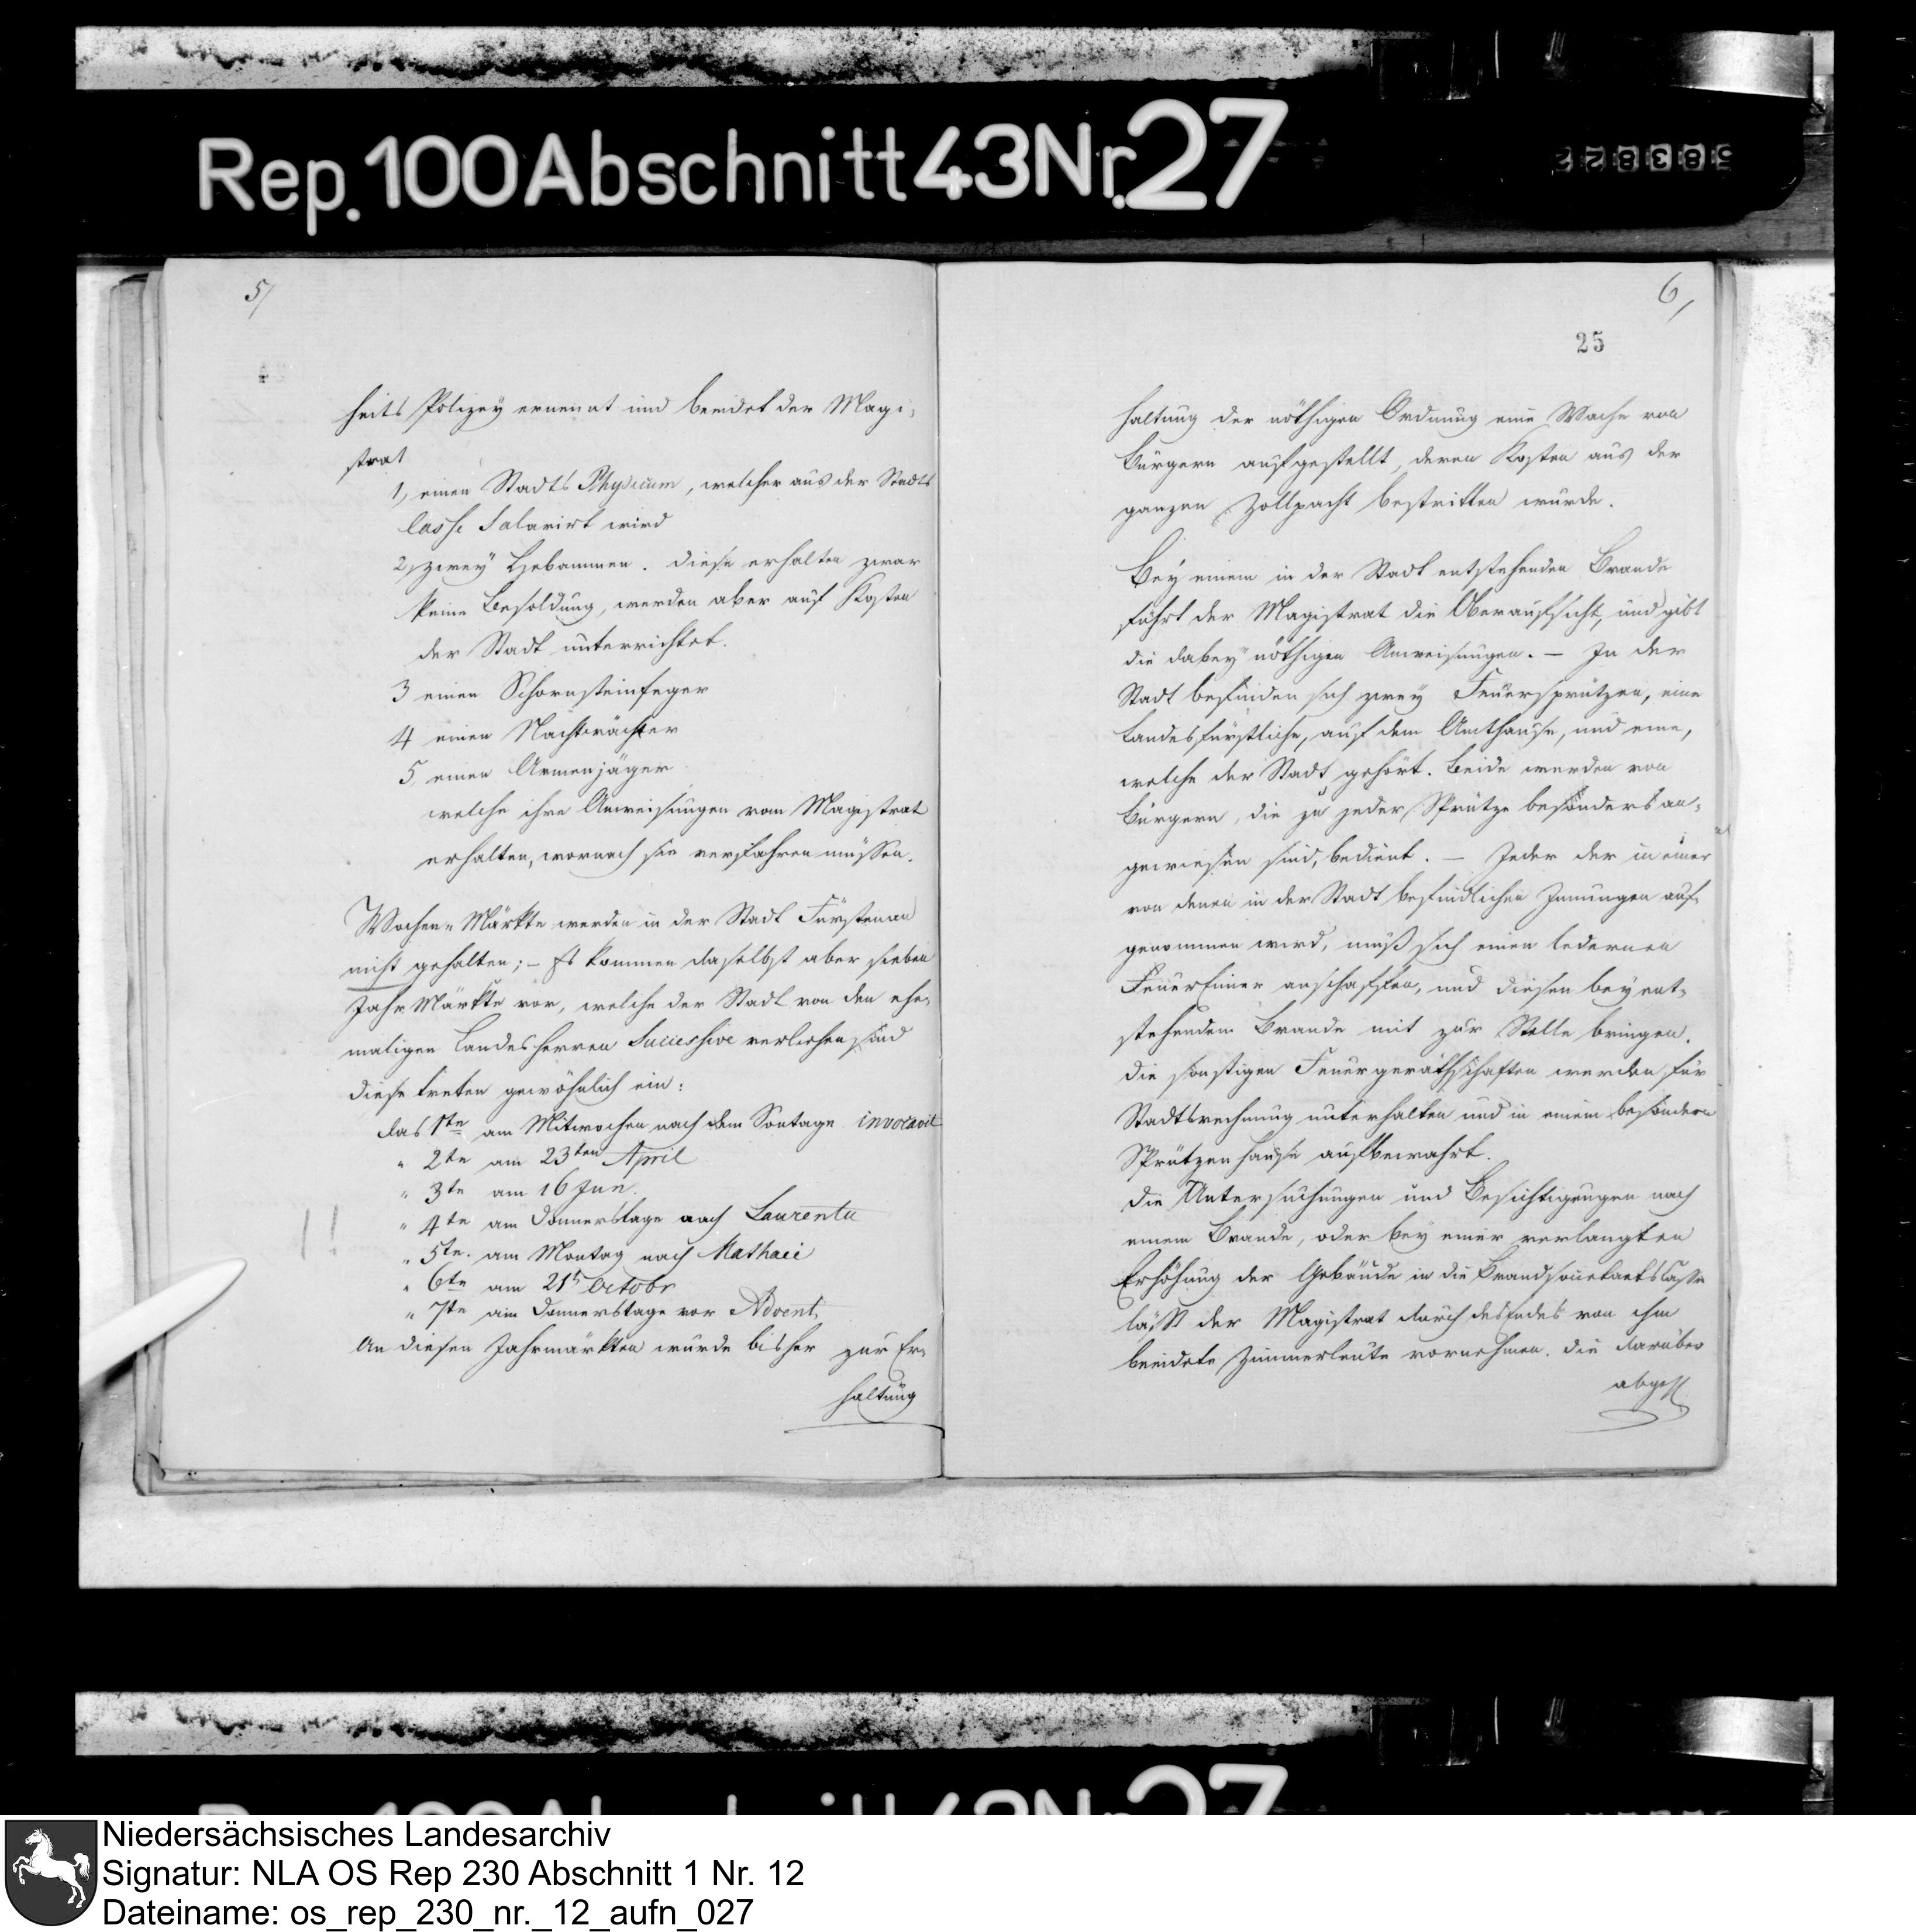 Rep. 100 Abschnitt 43 Nr. 27
583822
5/
heits Polizey ernennt und beeidet der Magi-
strat
1, einen Stadts Physicum, welcher aus der Stadts
Casse Salarirt wird
2, zwey Hebammen. diese erhalten zwar
keine Besoldung, werden aber auf Kosten
der Stadt unterrichtet.
3 einen Schornsteinfeger
4 einen Nachtwächter
5, einen Armenjäger
welche ihre Anweisungen vom Magistrat
erhalten, wornach sie verfahren müssen.
Wochen-Märkte werden in der Stadt Fürstenau
nicht gehalten; – Es kommen daselbst aber sieben
Jahr Märkte vor, welche der Stadt von den ehe-
maligen Landesherren Successive verliehen sind
diese treten gewöhnlich ein:
das 1te am Mitwochen nach dem Sontage invocavit
" 2te am 23ten April
" 3te am 16 Jun.
" 4te am Donnerstage nach Laurentii
" 5te. am Montag nach Mathaei
" 6te am 21t Octobr
" 7te am Donnerstage vor Advent,
An diesen Jahrmärkten wurde bisher zur Er-
haltung
6,
25
haltung der nöthigen Ordnung eine Wache von
Bürgern aufgestellt, deren Kosten aus der
ganzen Zollpacht bestritten wurde.
Bey einem in der Stadt entstehenden Brande
führt der Magistrat die Oberaufsicht, und gibt
die dabey nöthigen Anweisungen. – In der
Stadt befinden sich zwey Feuersprützen, eine
Landesfürstliche, auf dem Amthause, und eine,
welche der Stadt gehört. Beide werden von
Bürgern, die zu jeder Sprütze besonders an-
gewiesen sind, bedient. – Jeder der in einer
von denen in der Stadt befindlichen Innungen auf-
genommen wird, muß sich einen ledernen
FeuerEimer anschaffen, und diesen bey ent-
stehendem Brande mit zur Stelle bringen.
die sonstigen Feuergeräthschaften werden für
Stadtsrechnung unterhalten und in einem besondern
Sprützenhause aufbewahrt.
die Untersuchungen und Besichtigungen nach
einem Brande, oder bey einer verlangten
Erhöhung der Gebäude in die Brandsocietaets Casse
läßt der Magistrat durch desfals von ihm
beeidete Zimmerleute vornehmen. die darüber
Niedersächsisches Landesarchiv
Signatur: NLA OS Rep 230 Abschnitt 1 Nr. 12
Dateiname: os_rep_230_nr._12_aufn_027